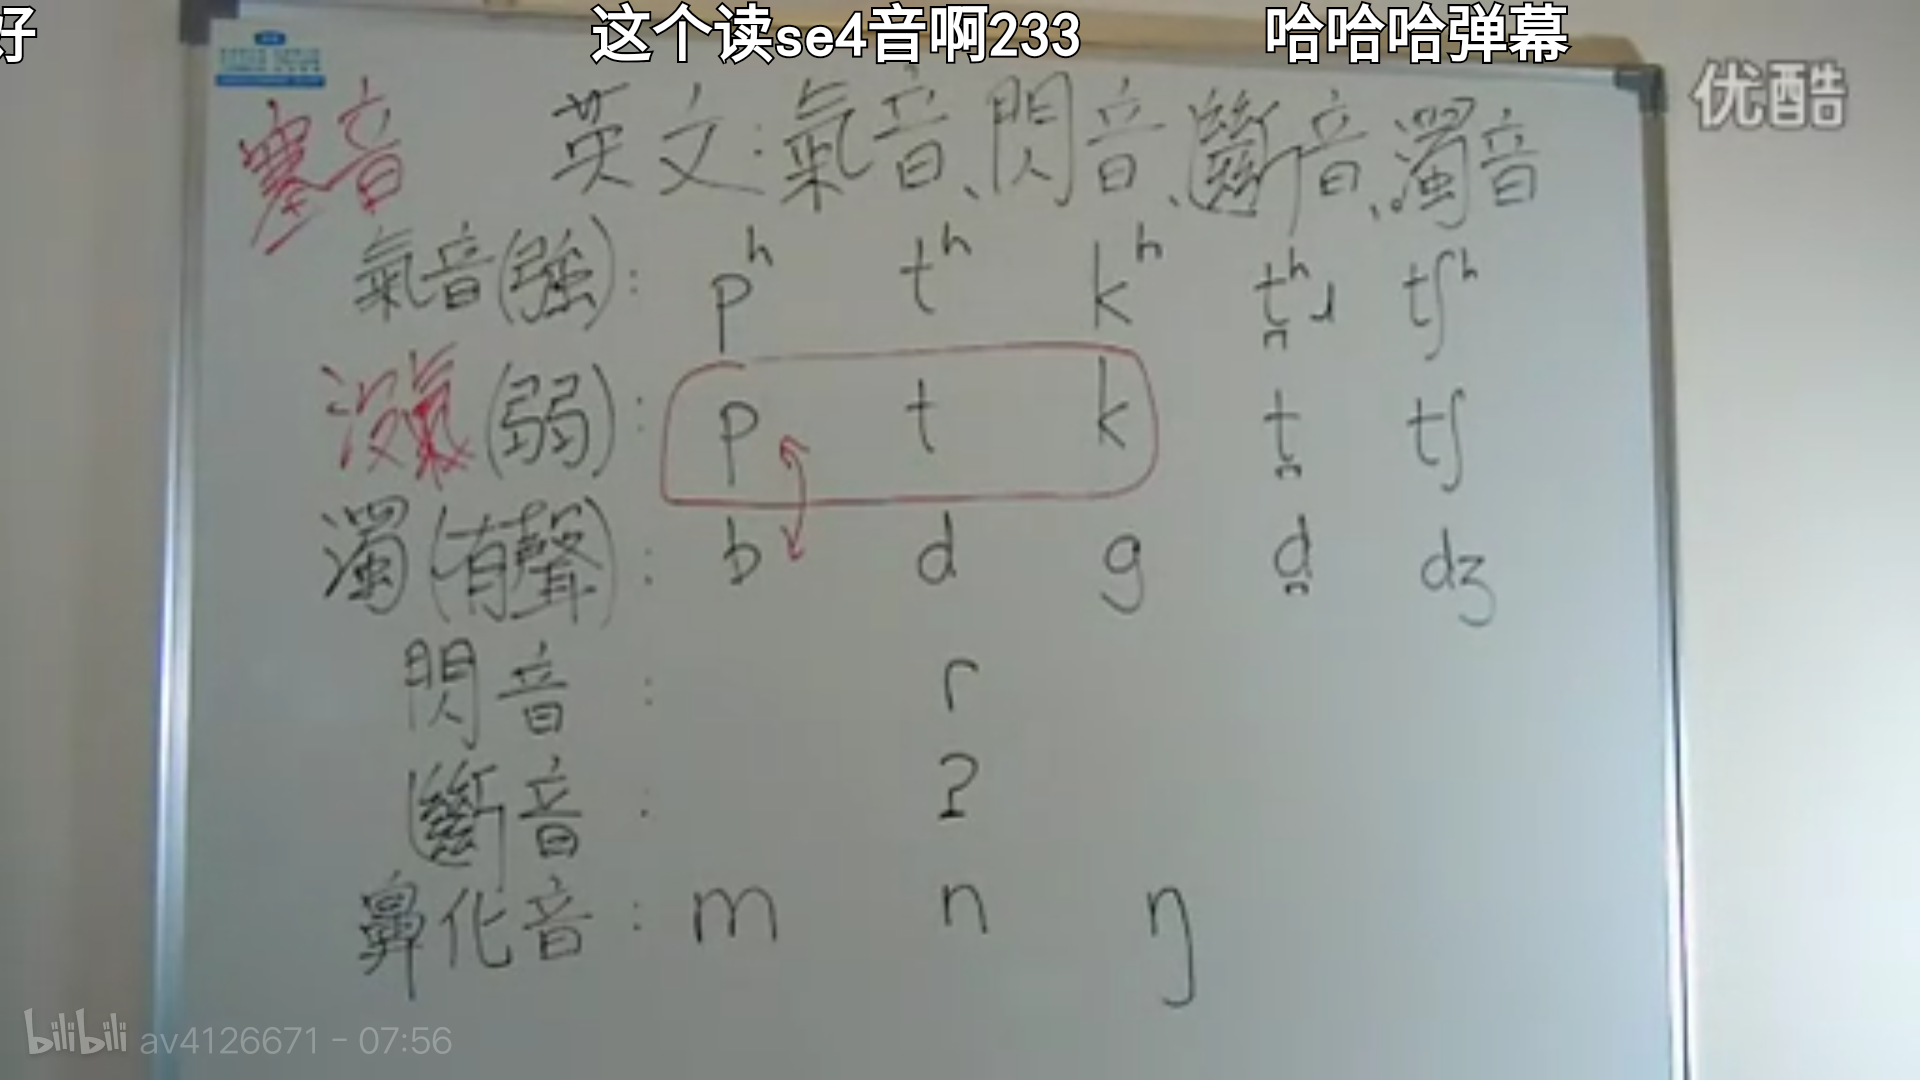 好 这个读se4音啊233 哈哈哈弹幕
优酷
塞音 英文:氣音、閃音、斷音、濁音
氣音(強): pʰ tʰ kʰ t̪ʰɹ tʃʰ
沒氣(弱): p t k t̪ tʃ
濁(有聲): b d g d̪ dʒ
閃音: ɾ
斷音: ʔ
鼻化音: m n ŋ
bilibili av4126671 - 07:56